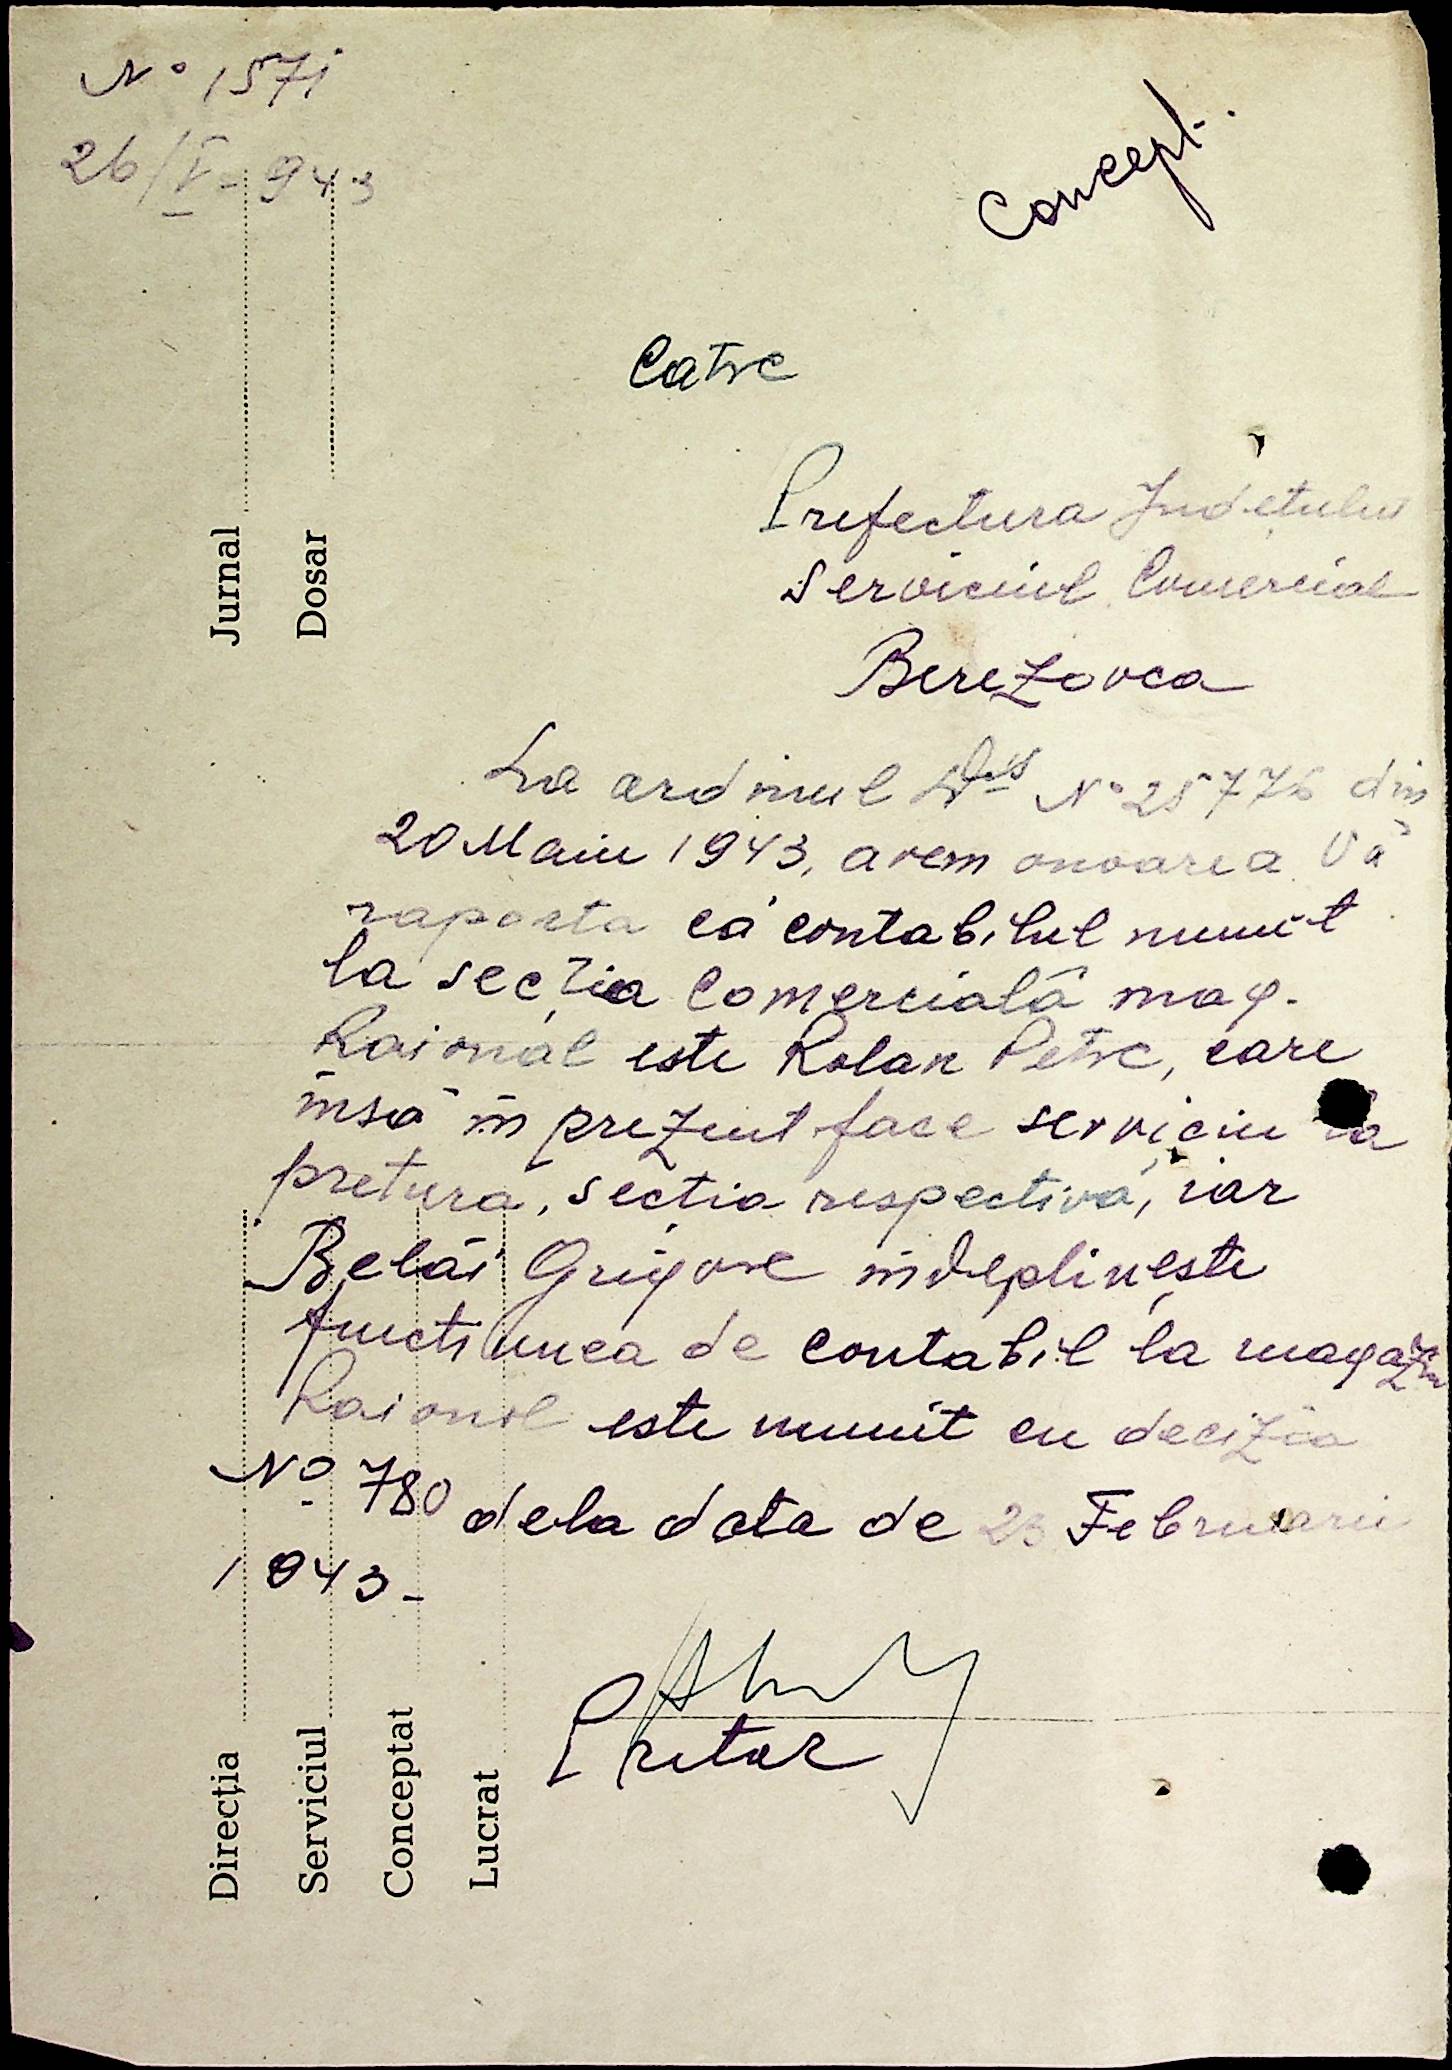 Nº 1571
26/V-943
Concept.
Catre
Prefectura Județului
Serviciul Comercial
Berezovca
La ordinul Dvs Nº 25776 din
20 Maiu 1943, avem onoarea Vă
raporta că contabilul numit
la secția Comercială mag.
Raional este Rolan Petre, care
însă în prezent face serviciu la
pretura, sectia respectivă, iar
Belăi Grigore îndeplinește
functiunea de contabil la magazin
Raional este numit cu decizia
Nº 780 dela data de 23 Februarie
1943-
Pretor
Jurnal
Dosar
Direcția
Serviciul
Conceptat
Lucrat